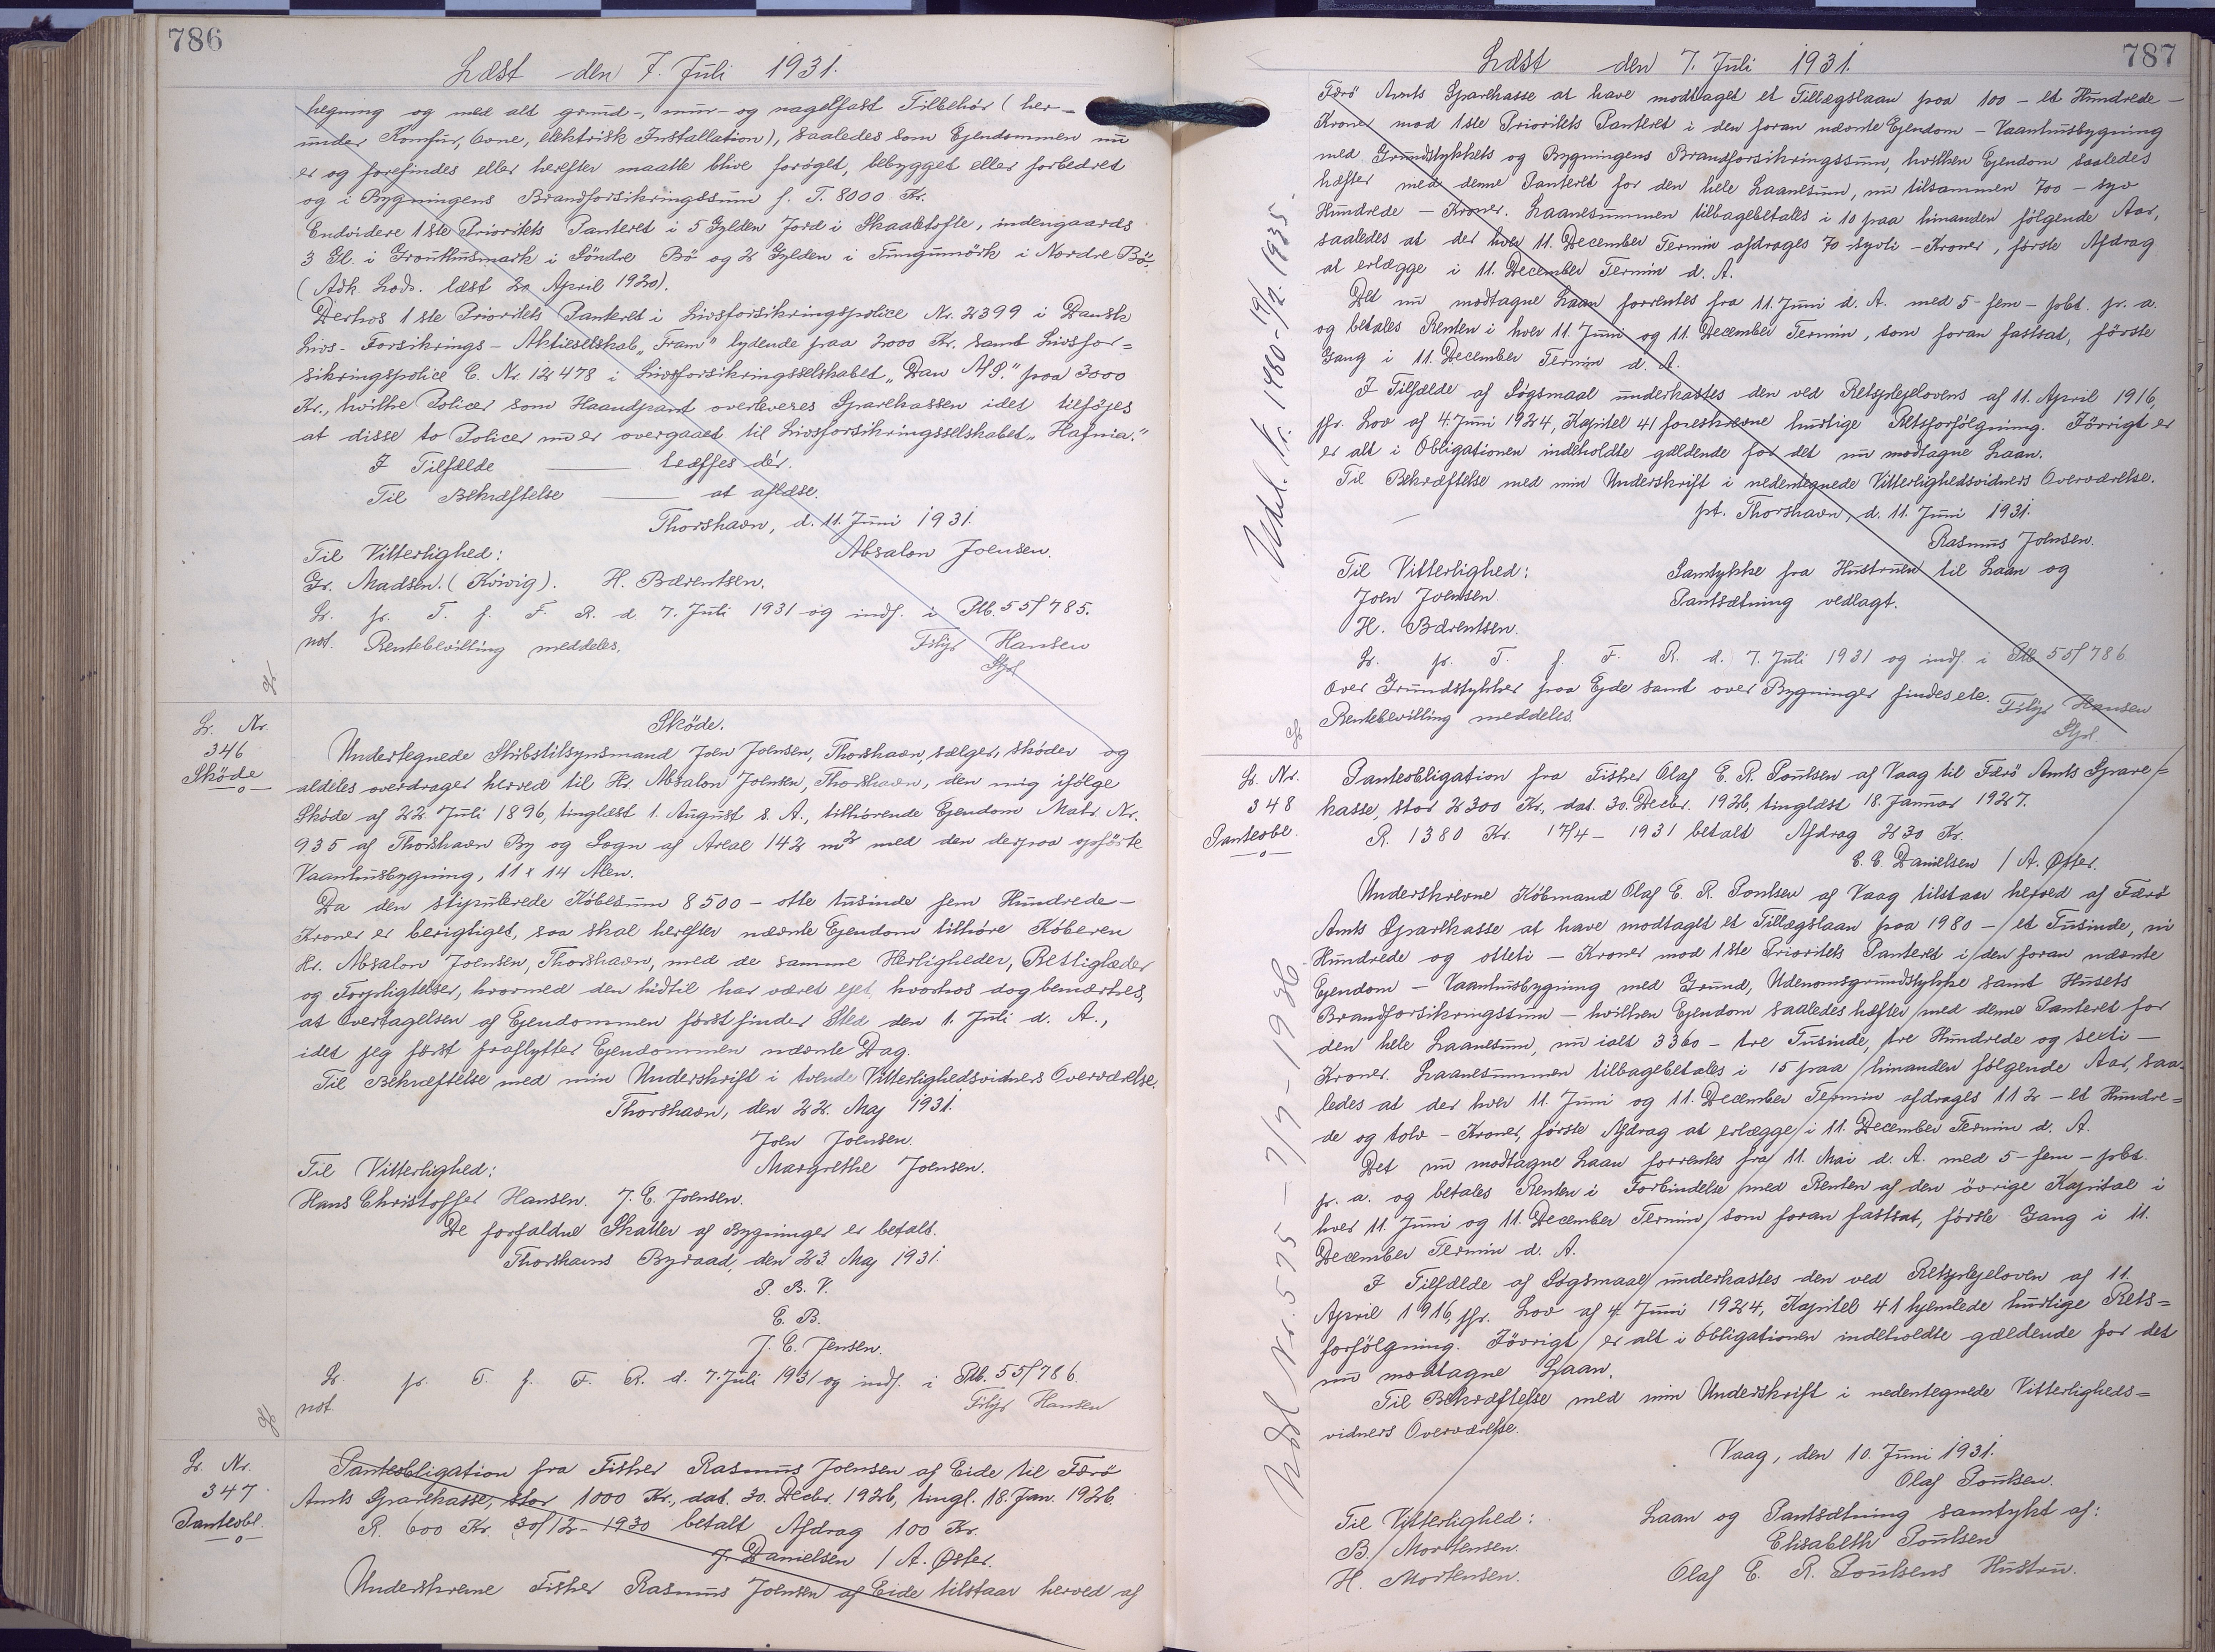 786
Læst den 7. Juli 1931.
hegning og med alt grund-, mur- og nagelfast Tilbehör (her-
under Komfur, Ovne, elektrisk Installation), saaledes som Ejendommen nu
er og forefindes eller herefter maatte blive forøget, bebygget eller forbedret
og i Bygningens Brandforsikringssum f. T. 8000 Kr.
Endvidere 1ste Prioritets Panteret i 5 Gylden Jord i Skaaletofte, indengaards
3 Gl. i Grouthusmark i Söndre Bö og 2 Gylden i Tungumörk i Nordre Bö.
(Adk. Lods. læst 20 April 1920).
Derhos 1ste Prioritets Panteret i Livsforsikringspolice Nr. 2399 i Dansk
Livs-Forsikrings-Aktieselskab "Fram" lydende paa 2000 Kr. samt Livsfor=
sikringspolice C. Nr. 12478 i Livsforsikringsselskabet "Dan A/S." paa 3000
Kr., hvilke Policer som Haandpant overleveres Sparekassen idet tilföjes
at disse to Policer nu er overgaaet til Livsforsikringsselskabet "Hafnia."
I Tilfælde ——— træffes dér.
Til Bekræftelse ——— at aflæse.
Thorshavn, d. 11. Juni 1931.
Til Vitterlighed: Absalon Joensen.
Gr. Madsen. (Kvivig). H. Bærentsen.
Lr. pr. T. f. F. R. d. 7. Juli 1931 og indf. i Ptb. 55/785.
not. Rentebevilling meddeles. Filip Hansen
Stfd
Lr. Nr.
346
Sköde
Sköde.
Undertegnede Skibstilsynsmand Joen Joensen, Thorshavn, sælger, sköder og
aldeles overdrager herved til Hr. Absalon Joensen, Thorshavn, den mig ifölge
Sköde af 22. Juli 1896, tinglæst 1. August s. A., tilhörende Ejendom Matr. Nr.
935 af Thorshavn By og Sogn af Areal 142 m² med den derpaa opförte
Vaanhusbygning, 11 x 14 Alen.
Da den stipulerede Köbesum 8500 - otte tusinde fem Hundrede -
Kroner er berigtiget, saa skal herefter nævnte Ejendom tilhöre Köberen
Hr. Absalon Joensen, Thorshavn, med de samme Herligheder, Rettigheder
og Forpligtelser, hvormed den hidtil har været ejet, hvorhos dog bemærkes,
at Overtagelsen af Ejendommen först finder Sted den 1. Juli d. A.,
idet jeg först fraflytter Ejendommen nævnte Dag.
Til Bekræftelse med min Underskrift i tvende Vitterlighedsvidners Overværelse.
Thorshavn, den 22. Maj 1931.
Joen Joensen.
Til Vitterlighed: Margrethe Joensen.
Hans Christoffer Hansen. J. E. Joensen.
De forfaldne Skatter af Bygninger er betalt.
Thorshavns Byraad, den 23. Maj 1931.
P. B. V.
E. B.
J. C. Jensen.
Lr. pr. T. f. F. R. d. 7. Juli 1931 og indf. i Ptb. 55/786.
not. Filip Hansen
Lr. Nr.
347.
Panteobl.
Panteobligation fra Fisker Rasmus Joensen af Eide til Færö
Amts Sparekasse, stor 1000 Kr., dat. 30. Decbr. 1926, tingl. 18. Jan. 1926.
R. 600 Kr. 30/12-1930 betalt Afdrag 100 Kr.
J. Danielsen / A. Øster.
Underskrevne Fisker Rasmus Joensen af Eide tilstaar herved af
787
Læst den 7. Juli 1931.
Færö Amts Sparekasse at have modtaget et Tillægslaan paa 100 - et Hundrede -
Kroner mod 1ste Prioritets Panteret i den foran nævnte Ejendom - Vaanhusbygning
med Grundstykkets og Bygningens Brandforsikringssum, hvilken Ejendom saaledes
hæfter med denne Panteret for den hele Laanesum, nu tilsammen 700 - syv
Hundrede - Kroner. Laanesummen tilbagebetales i 10 paa hinanden fölgende Aar,
saaledes at der hver 11. December Termin afdrages 70 - syvti - Kroner, förste Afdrag
at erlægge i 11. December Termin d. A.
Det nu modtagne Laan forrentes fra 11. Juni d. A. med 5 - fem - pCt. p. a.
og betales Renten i hver 11. Juni og 11. December Termin, som foran fastsat, förste
Gang i 11. December Termin d. A.
I Tilfælde af Sögsmaal underkastes den ved Retsplejelovens af 11. April 1916,
jfr. Lov af 4. Juni 1924, Kapitel 41 foreskrevne hurtige Retsforfölgning. Iövrigt er
er alt i Obligationen indeholdte gældende for det nu modtagne Laan.
Til Bekræftelse med min Underskrift i nedentegnede Vitterlighedsvidners Overværelse.
pt. Thorshavn, d. 11. Juni 1931.
Rasmus Joensen.
Til Vitterlighed: Samtykke fra Hustruen til Laan og
Joen Joensen. Pantsætning vedlagt.
H. Bærentsen.
Lr. pr. T. f. F. R. d. 7. Juli 1931 og indf. i Ptb 55/786
Over Grundstykker paa Ejde samt over Bygninger findes ele.
Rentebevilling meddeles. Filip Hansen
Stfd.
Udsl. Nr. 1460 - 19/12. 1935.
Lr. Nr.
348
Panteobl.
Panteobligation fra Fisker Olaf E. R. Poulsen af Vaag til Færö Amts Spare=
kasse, stor 2300 Kr., dat. 30. Decbr. 1926, tinglæst 18. Januar 1927.
R. 1380 Kr. 17/4 - 1931 betalt Afdrag 230 Kr.
E. E. Danielsen / A. Øster.
Underskrevne Köbmand Olaf E. R. Poulsen af Vaag tilstaar herved af Færö
Amts Sparekasse at have modtaget et Tillægslaan paa 1980 - et Tusinde, ni
Hundrede og otteti - Kroner mod 1ste Prioritets Panteret i den foran nævnte
Ejendom - Vaanhusbygning med Grund, Udenomsgrundstykke samt Husets
Brandforsikringssum - hvilken Ejendom saaledes hæfter med denne Panteret for
den hele Laanesum, nu ialt 3360 - tre Tusinde, tre Hundrede og seeti -
Kroner. Laanesummen tilbagebetales i 15 paa hinanden fölgende Aar, saa-
ledes at der hver 11. Juni og 11. December Termin afdrages 112 - et Hundre=
de og tolv - Kroner, förste Afdrag at erlægge i 11. December Termin d. A.
Det nu modtagne Laan forrentes fra 11. Mai d. A. med 5 - fem - pCt.
p. a. og betales Renten i Forbindelse med Renten af den övrige Kapital i
hver 11. Juni og 11. December Termin som foran fastsat, förste Gang i 11.
December Termin d. A.
I Tilfælde af Sögsmaal underkastes den ved Retsplejeloven af 11.
April 1916, jfr. Lov af 4. Juni 1924, Kapitel 41 hjemlede hurtige Rets=
forfölgning. Iövrigt er alt i Obligationen indeholdte gældende for det
nu modtagne Laan.
Til Bekræftelse med min Underskrift i nedentegnede Vitterligheds=
vidners Overværelse.
Vaag, den 10. Juni 1931.
Olaf Poulsen.
Til Vitterlighed: Laan og Pantsætning samtykt af:
B. Mortensen. Elisabeth Poulsen
H. Mortensen. Olaf E. R. Poulsens Hustru.
Udsl Nr. 575 - 7/7 - 1936